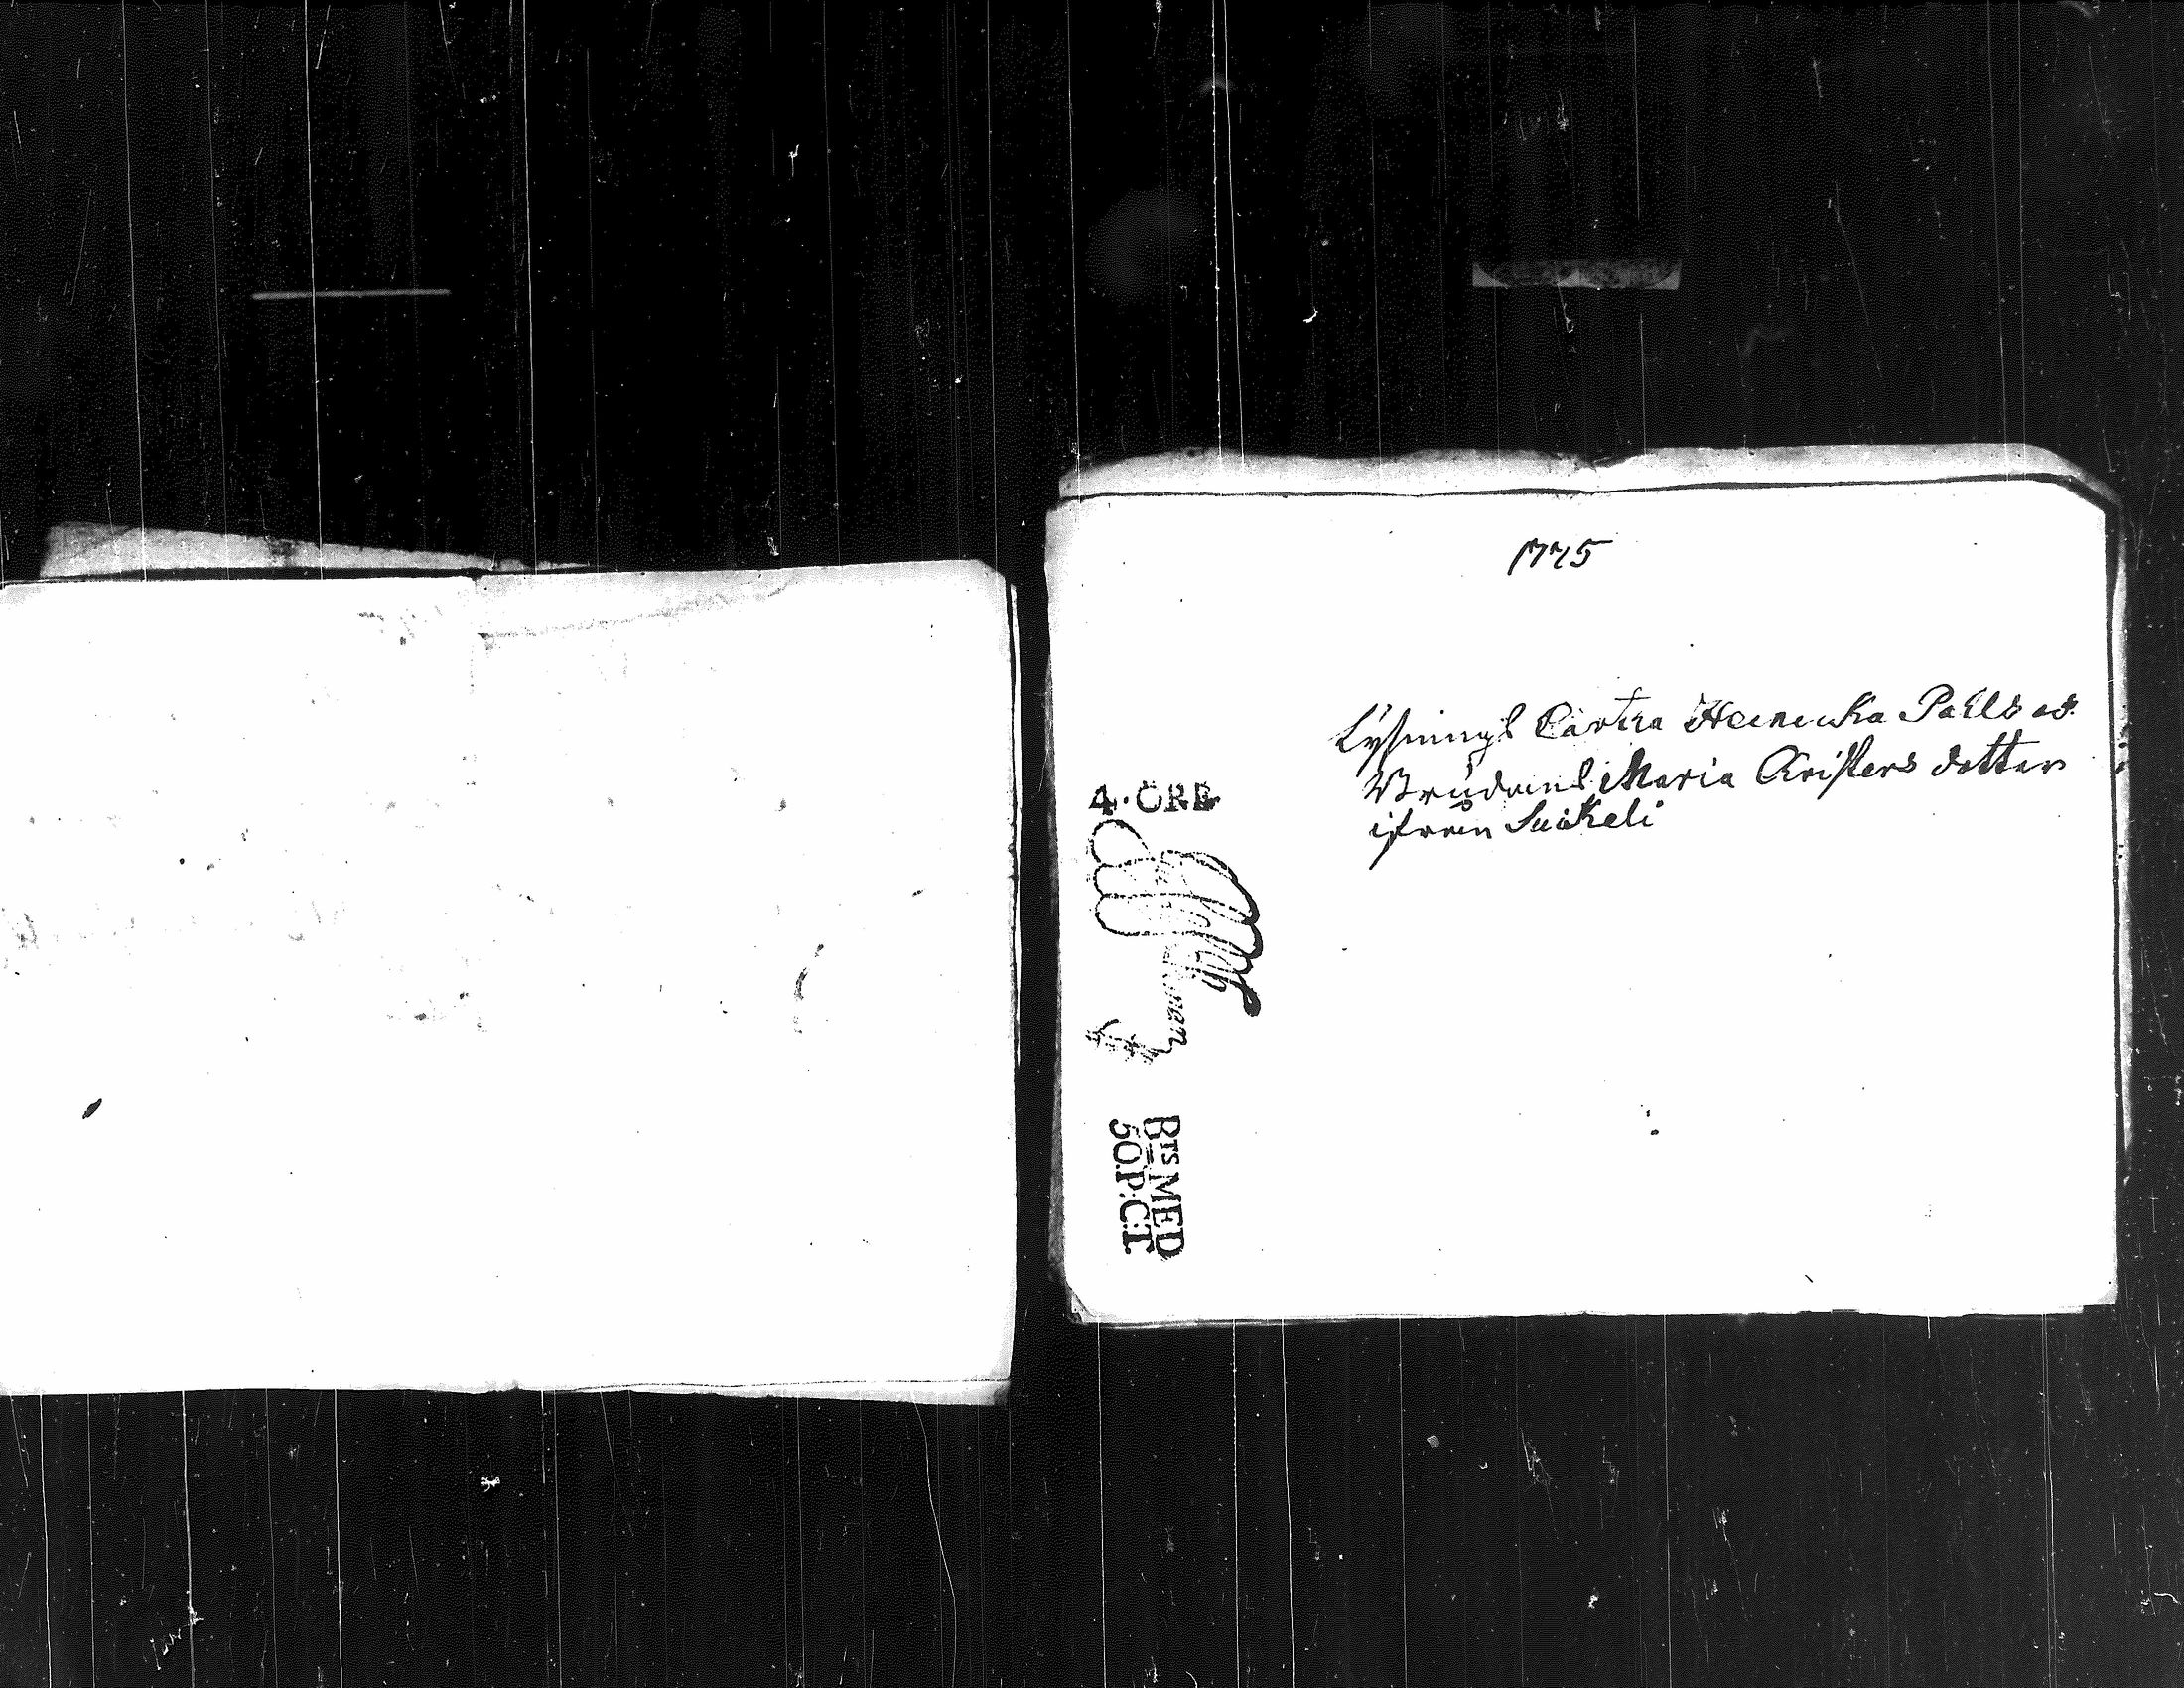 1775
Lysnings Cartta Heinicka Påhls og
Brudens Maria Kristers dotter
ifrån Suikeli
4. ÖRE
BTS MED
50. P:C:T.